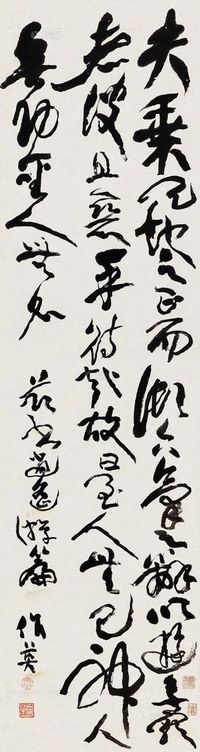 夫乘天地之正而御六氣之辯以遊無窮
者彼且惡乎待哉故曰至人無己神人
無功聖人無名
莊逍遙游篇
作英